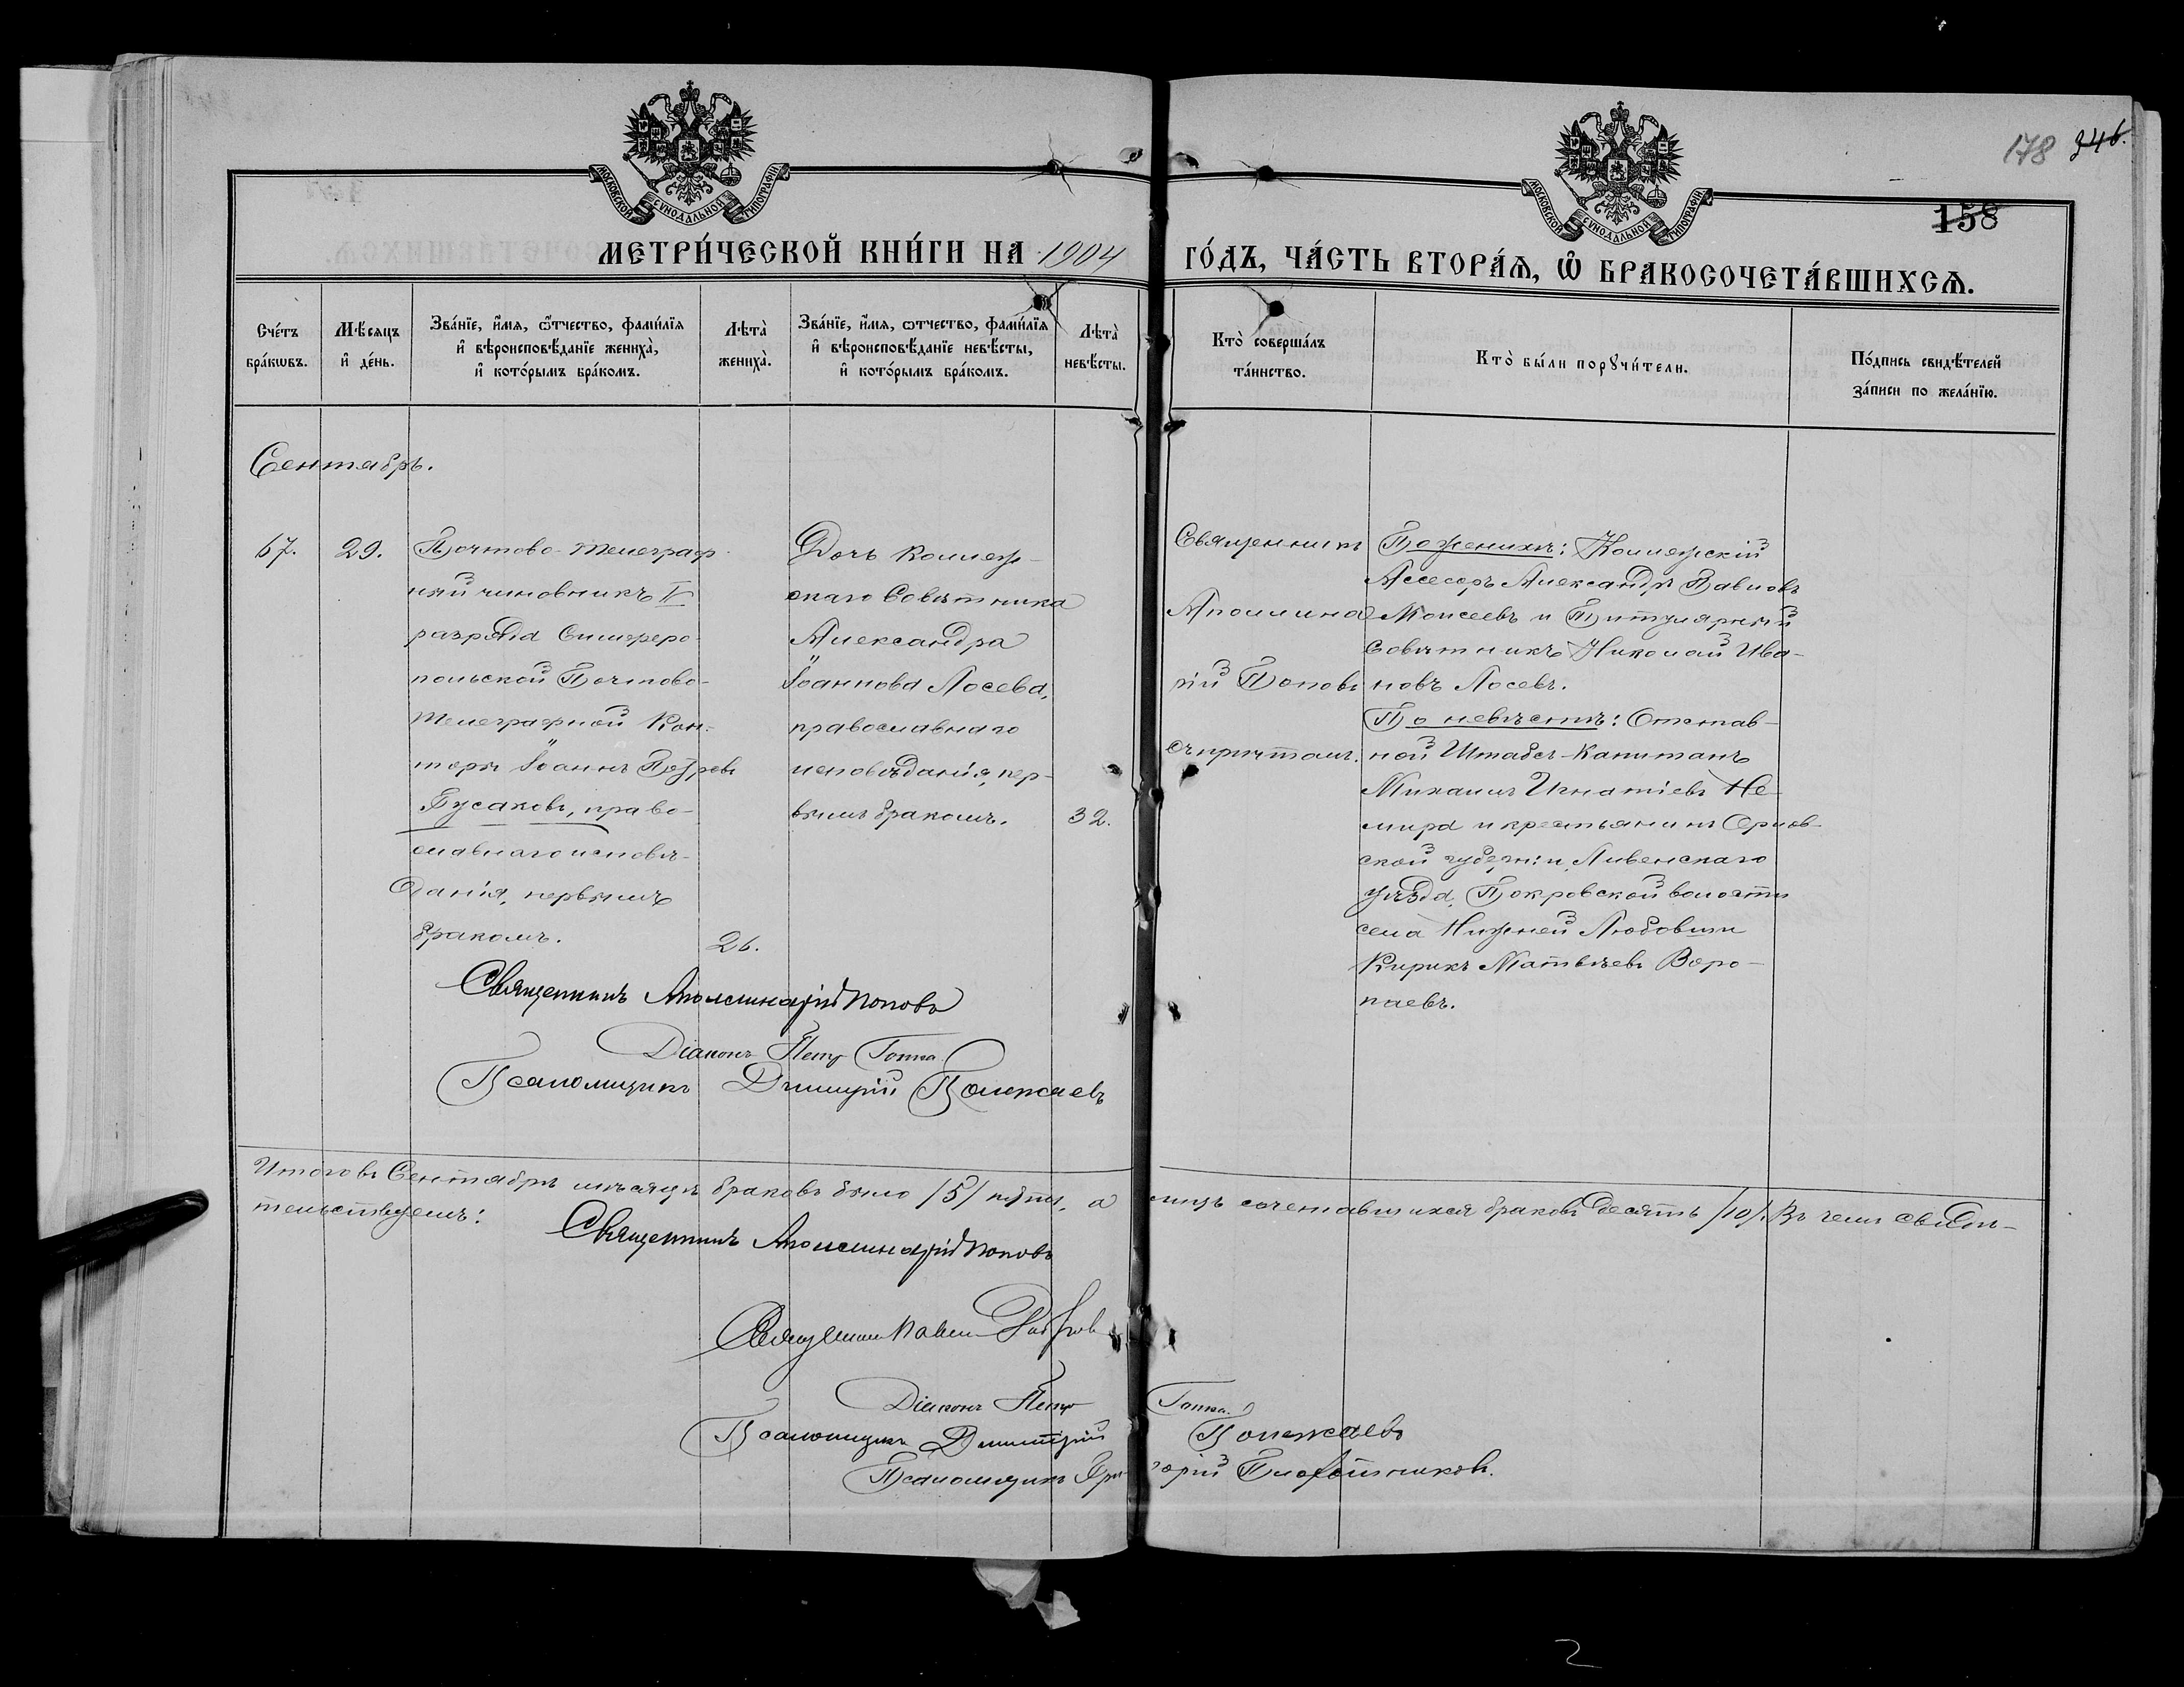 178 346.
158
МОСКОВСКОЙ СѴНОДАЛЬНОЙ ТИПОГРАФІИ
МОСКОВСКОЙ СѴНОДАЛЬНОЙ ТИПОГРАФІИ
МЕТРИ́ЧЕСКОЙ КНИ́ГИ НА 1904 ГО́ДЪ, ЧА́СТЬ ВТОРА́Ѧ, Ѿ БРАКОСОЧЕТА́ВШИХСѦ.
Сче́тъ
бра́кωвъ.
Мѣсяцъ
и҆ де́нь.
Зва́нїе, и҆́мѧ, ѻ҆́тчество, фами́лїѧ
и҆ вѣроисповѣ́данїе жениха̀,
и҆ кото́рымъ бра́комъ.
Лѣта̀
жениха̀.
Зва́нїе, и҆́мѧ, ѻтчество, фами́лїѧ
и҆ вѣроисповѣ́данїе невѣ́сты,
и҆ кото́рымъ бра́комъ.
Лѣта̀
невѣ́сты.
Кто̀ соверша́лъ
та́инство.
Кто̀ бы́ли порꙋчи́тели.
По́дпись свидѣ́телей
за́писи по жела́нїю.
Сентябрь.
67.
29.
Почтово-телеграф-
ный чиновникъ V
разряда Симферо-
польской Почтово-
Телеграфной Кон-
торы Іоаннъ Петровъ
Гусаковъ, право-
славнаго исповѣ-
данія, первымъ
бракомъ.
26.
Дочь Коллеж-
скаго Совѣтника
Александра
Іоаннова Лосева,
православнаго
исповѣданія, пер-
вымъ бракомъ.
32.
Священникъ
Аполлина
рій Поповъ
съ причтомъ.
По женихѣ: Коллежскій
Ассесоръ Александръ Павловъ
Моисеевъ и Титулярный
Совѣтникъ Николай Ива-
новъ Лосевъ.
По невѣстѣ: Отстав-
ной Штабсъ-Капитанъ
Михаилъ Игнатіевъ Не-
мира и крестьянинъ Орлов-
ской губерніи, Ливенскаго
уѣзда, Покровской волости
села Нижней Любовши
Кирикъ Матвѣевъ Воро-
паевъ.
Священникъ Аполлинарій Поповъ
Діаконъ Петръ Гопка.
Псаломщикъ Димитрій Полежаевъ
Итого въ Сентябрѣ мѣсяцѣ браковъ было /5/ пять, а лицъ сочетавшихся бракомъ десять /10/. Въ чемъ свидѣ-
тельствуемъ:
Священникъ Аполлинарій Поповъ
Священникъ Павелъ
Діаконъ Петръ Гопка.
Псаломщикъ Димитрій Полежаевъ
Псаломщикъ Григорій
2